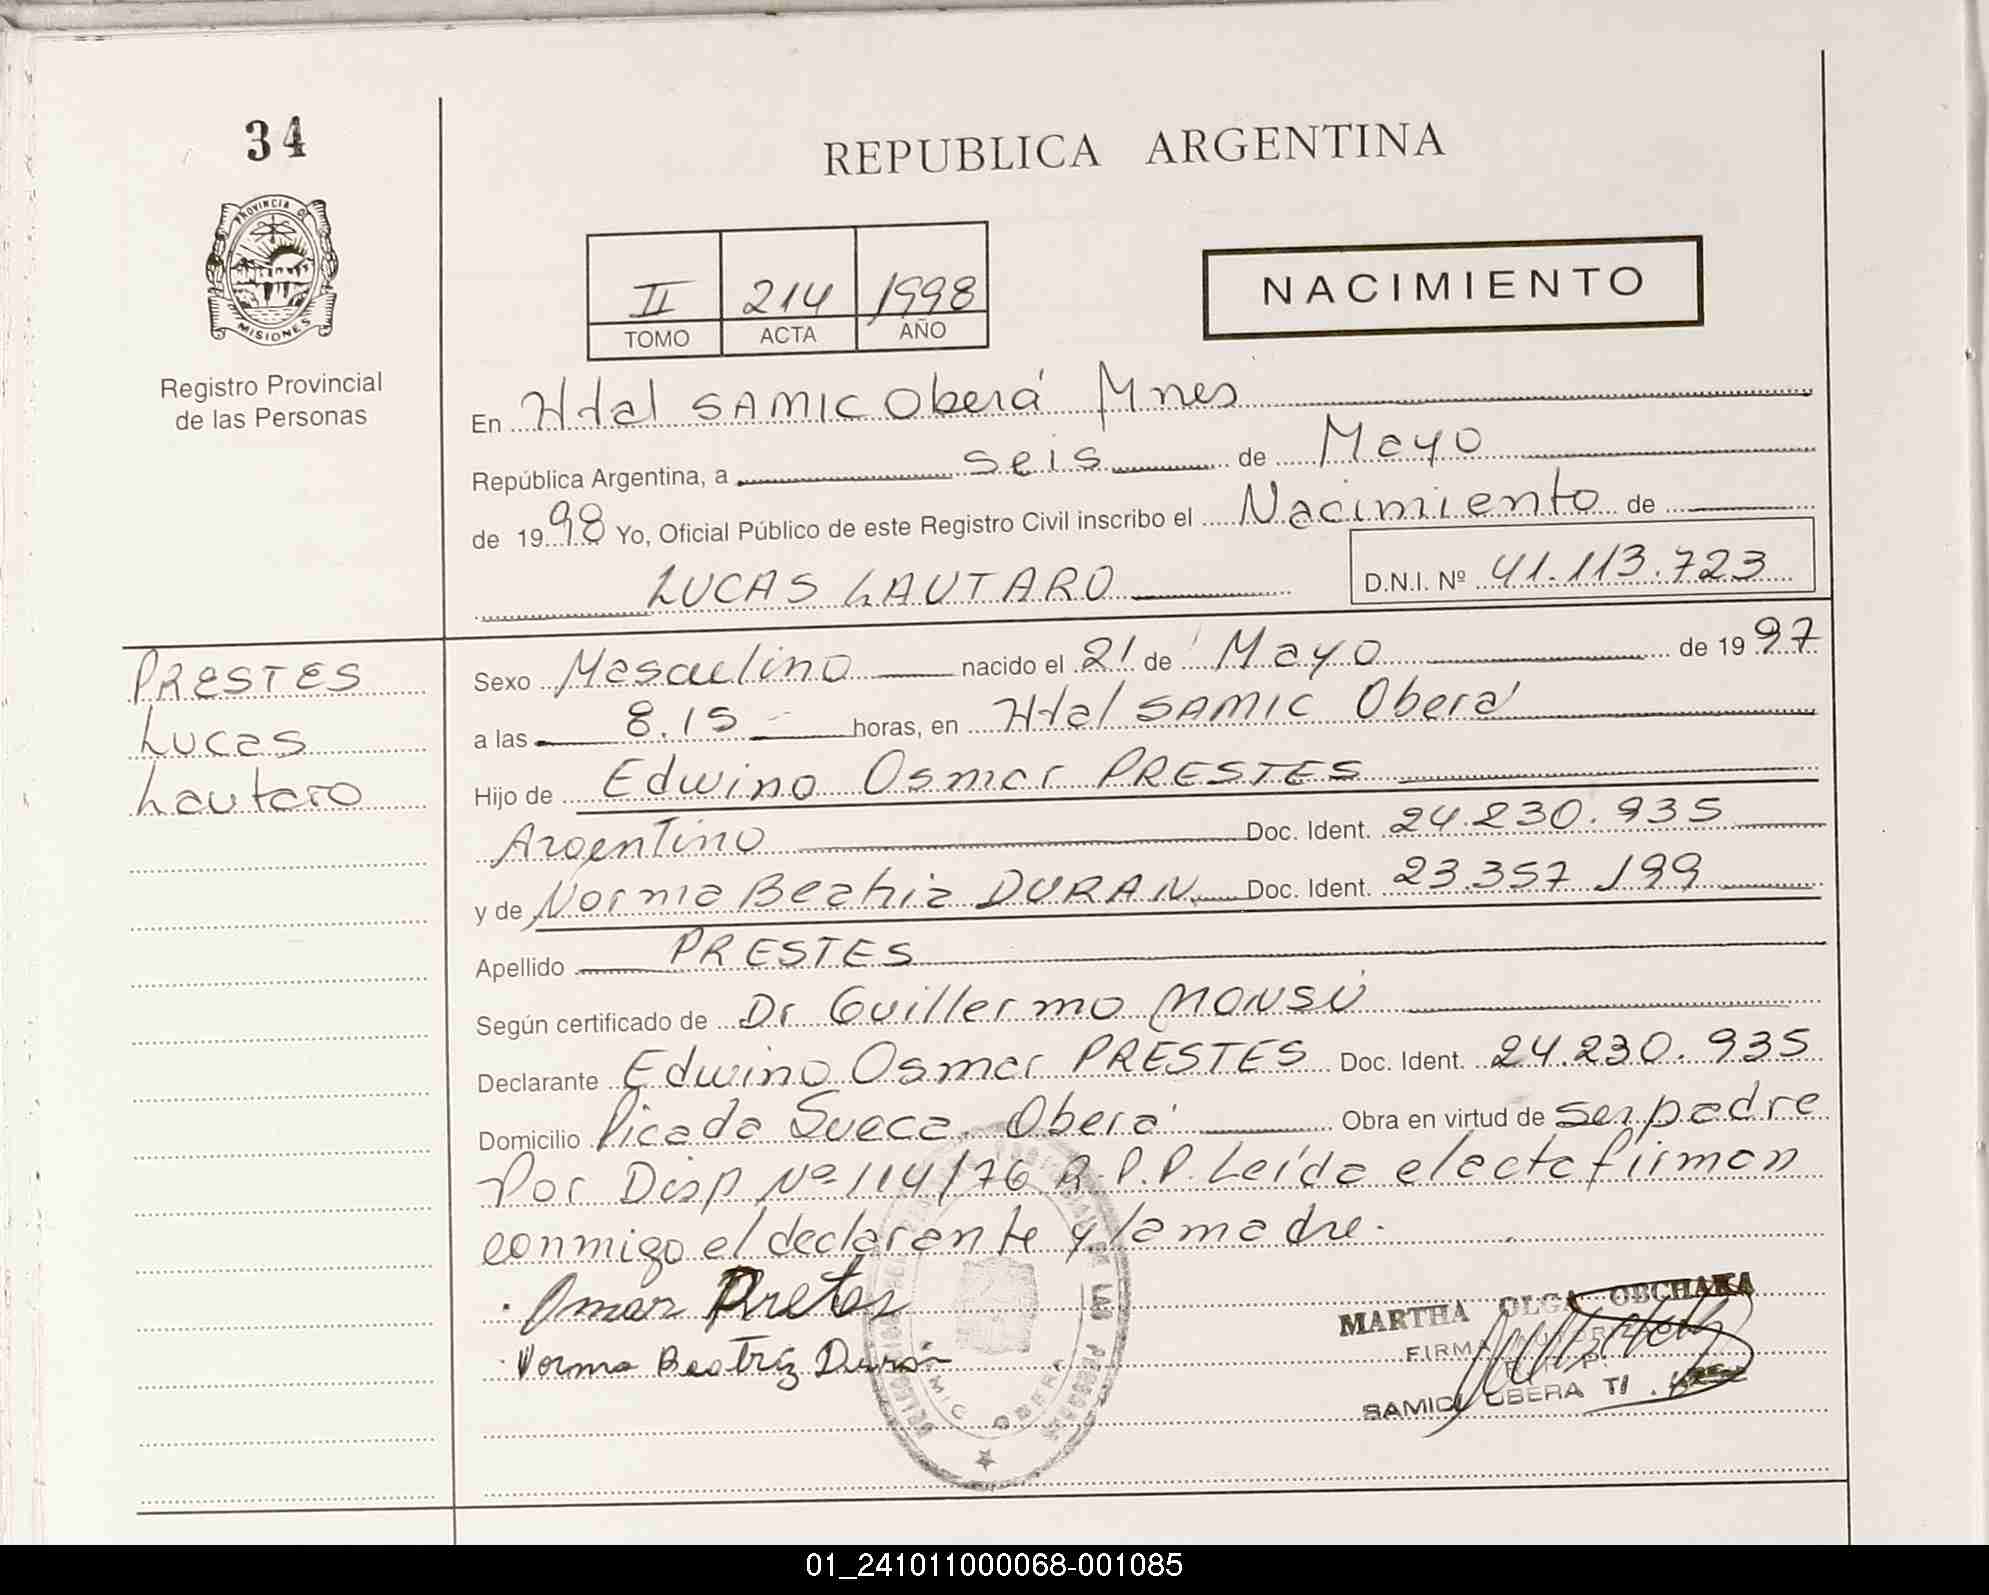 34
PROVINCIA DE
MISIONES
Registro Provincial
de las Personas
REPUBLICA ARGENTINA
II 214 1998
TOMO ACTA AÑO
NACIMIENTO
En Htal SAMIC Oberá Mnes
República Argentina, a seis de Mayo
de 1998 Yo, Oficial Público de este Registro Civil inscribo el Nacimiento de
LUCAS LAUTARO D.N.I. Nº 41.113.723
PRESTES
Lucas
Lautaro
Sexo Masculino nacido el 21 de Mayo de 1997
a las 8.15 horas, en Htal SAMIC Oberá
Hijo de Edwino Osmar PRESTES
Argentino Doc. Ident. 24.230.935
y de Norma Beatriz DURAN Doc. Ident. 23.357.199
Apellido PRESTES
Según certificado de Dr Guillermo MONSÚ
Declarante Edwino Osmar PRESTES Doc. Ident. 24.230.935
Domicilio Picada Sueca. Oberá Obra en virtud de ser padre
Por Disp Nº 114/76 R.P.P. Leída el acta firman
conmigo el declarante y la madre.
Omar Pretes
Norma Beatriz Durán
MARTHA OLGA OBCHAKA
FIRMA
SAMIC OBERA
LAS PERSONAS
SAMIC OBERA
01_241011000068-001085